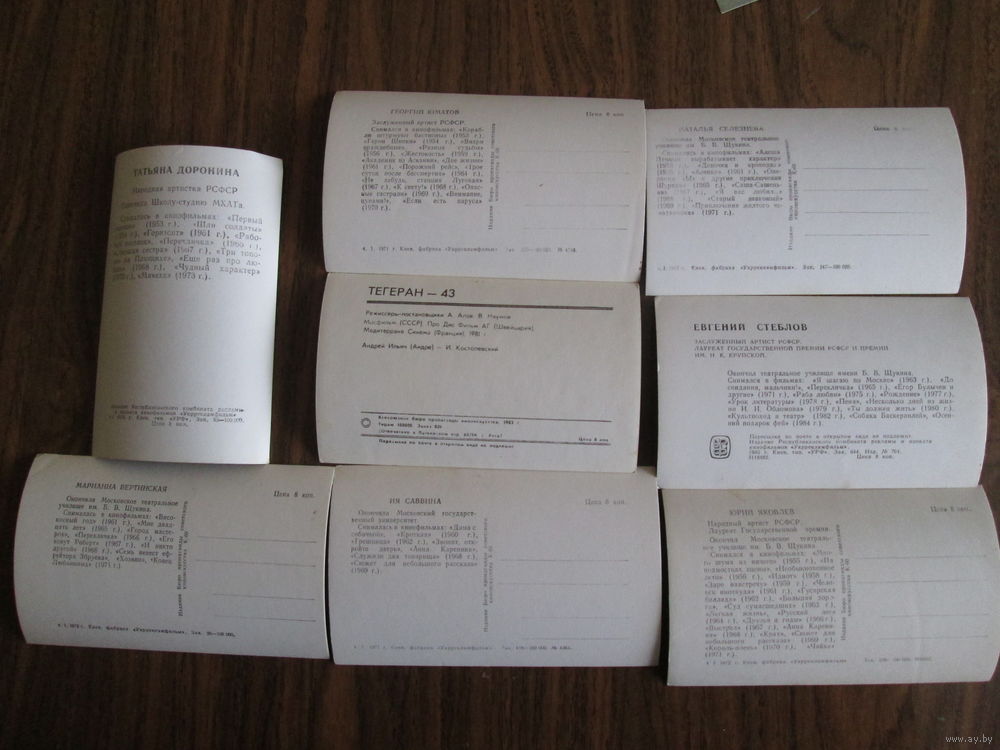 ТАТЬЯНА ДОРОНИНА
Народная артистка РСФСР
Школу-студию МХАТа.
Снималась в кинофильмах: «Первый
(1953 г.), «Шли солдаты»
г.), «Горизонт» (1961 г.), «Рабо-
«Перекличка» (1965 г.),
сестра» (1967 г.), «Три топо-
на Плющихе», «Еще раз про лю-
(1968 г.), «Чудный характер»
г.), «Мачеха» (1973 г.).
Издание Республиканского комбината рекламы
и проката кинофильмов «Укррекламфильм»
Цена 8 коп.
ГЕОРГИЙ ЮМАТОВ
Цена 8 коп.
Заслуженный артист РСФСР.
Снимался в кинофильмах: «Кораб-
ли штурмуют бастионы» (1953 г.),
«Герои Шипки» (1954 г.), «Вихри
враждебные», «Разные судьбы»
(1956 г.), «Жестокость» (1959 г.),
«Академик из Аскании», «Две жизни»
(1961 г.), «Порожний рейс», «Трое
суток после бессмертия» (1964 г.),
«Не забудь, станция Луговая»
(1967 г.), «К свету!» (1968 г.), «Опас-
ные гастроли» (1969 г.), «Внимание,
цунами!», «Если есть паруса»
(1970 г.).
Издание Бюро пропаганды советского
киноискусства К-60
4. 1. 1971 г. Киев, фабрика «Укррекламфильм»
НАТАЛЬЯ СЕЛЕЗНЕВА
Цена 8 коп.
Окончила Московское театральное
училище им. Б. В. Щукина.
Снималась в кинофильмах: «Алеша
Птицын вырабатывает характер»
(1953 г.), «Девочка и крокодил»
«Операция
«Ы» и другие приключения
Шурика» (1965 г.), «Саша-Сашень-
ка» «Я вас любил..»
«Старый знакомый»
(1969 г.), «Приключения желтого че-
моданчика» (1971 г.).
Издание Бюро пропаганды советского
киноискусства К-60
Киев, фабрика «Укррекламфильм». Зак.
ТЕГЕРАН — 43
Режиссеры-постановщики А. Алов, В. Наумов
Мосфильм (СССР) Про Дис Фильм АГ (Швейцария)
Медитерране Синема (Франция) 1981 г.
Андрей Ильич (Андре) — И. Костолевский
Всесоюзное бюро пропаганды киноискусства, 1982 г.
Цена 8 коп.
Пересылка по почте в открытом виде не подлежит
ЕВГЕНИЙ СТЕБЛОВ
ЗАСЛУЖЕННЫЙ АРТИСТ РСФСР.
ЛАУРЕАТ ГОСУДАРСТВЕННОЙ ПРЕМИИ РСФСР И ПРЕМИИ
ИМ. Н. К. КРУПСКОЙ.
Окончил театральное училище имени Б. В. Щукина.
Снимался в фильмах: «Я шагаю по Москве» (1963 г.), «До
свидания, мальчики!», «Перекличка» (1965 г.), «Егор Булычев и
другие» (1971 г.), «Раба любви» (1975 г.), «Рождение» (1977 г.),
«Урок литературы» (1978 г.), «Пена», «Несколько дней из жиз-
ни И. И. Обломова» (1979 г.), «Ты должен жить» (1980 г.),
«Культпоход в театр» (1982 г.), «Собака Баскервилей», «Осен-
ний подарок фей» (1984 г.).
Пересылке по почте в открытом виде не подлежит.
Издание Республиканского комбината рекламы и проката
кинофильмов «Укррекламфильм»
1985 г. Киев, тип. «УРФ», Зак. 644, Изд. № 704.
Цена 8 коп.
МАРИАННА ВЕРТИНСКАЯ
Цена 8 коп.
Окончила Московское театральное
училище им. Б. В. Щукина.
Снималась в кинофильмах: «Висо-
косный год» (1961 г.), «Мне двад-
цать лет» (1965 г.), «Город масте-
ров», «Перекличка» (1966 г.), «Его
зовут Роберт» (1967 г.), «И никто
другой» (1968 г.), «Семь невест еф-
рейтора Збруева», «Хозяин», «Конец
Любавиных» (1971 г.)
Издание Бюро пропаганды советского
киноискусства К-60
Киев, фабрика «Укррекламфильм», Зак.
ИЯ САВВИНА
Цена 8 коп.
Окончила Московский государст-
венный университет.
Снималась в кинофильмах: «Дама с
собачкой», «Кроткая» (1960 г.),
«Грешница» (1962 г.), «Звонят, отк-
ройте дверь», «Анна Каренина»,
«Служили два товарища» (1968 г.),
«Сюжет для небольшого рассказа»
(1969 г.).
Издание Бюро пропаганды советского
киноискусства К-60
4. 1. 1971 г. Киев, фабрика «Укррекламфильм»
ЮРИЙ ЯКОВЛЕВ
Цена 8 коп.
Народный артист РСФСР.
Лауреат Государственной премии.
Окончил Московское театраль-
ное училище им. Б. В. Щукина.
Снимался в кинофильмах: «Мно-
го шума из ничего» (1955 г.), «На
подмостках сцены», «Необыкновенное
лето» (1956 г.), «Идиот» (1958 г.),
«Заре навстречу» (1959 г.), «Чело-
век ниоткуда» (1961 г.), «Гусарская
баллада» (1962 г.), «Большая дор.-
га», «Суд сумасшедших» (1963 г.),
«Легкая жизнь», «Русский лес»
(1964 г.), «Друзья и годы» (1966 г.),
«Выстрел» (1967 г.), «Анна Карени-
на» (1968 г.), «Крах», «Сюжет для
небольшого рассказа» (1969 г.),
«Король-олень» (1970 г.), «Чайка»
(1971 г.)
Издание Бюро пропаганды советского
киноискусства К-60
4. 1. 1972 г. Киев, фабрика «Укррекламфильм»
www.ay.by